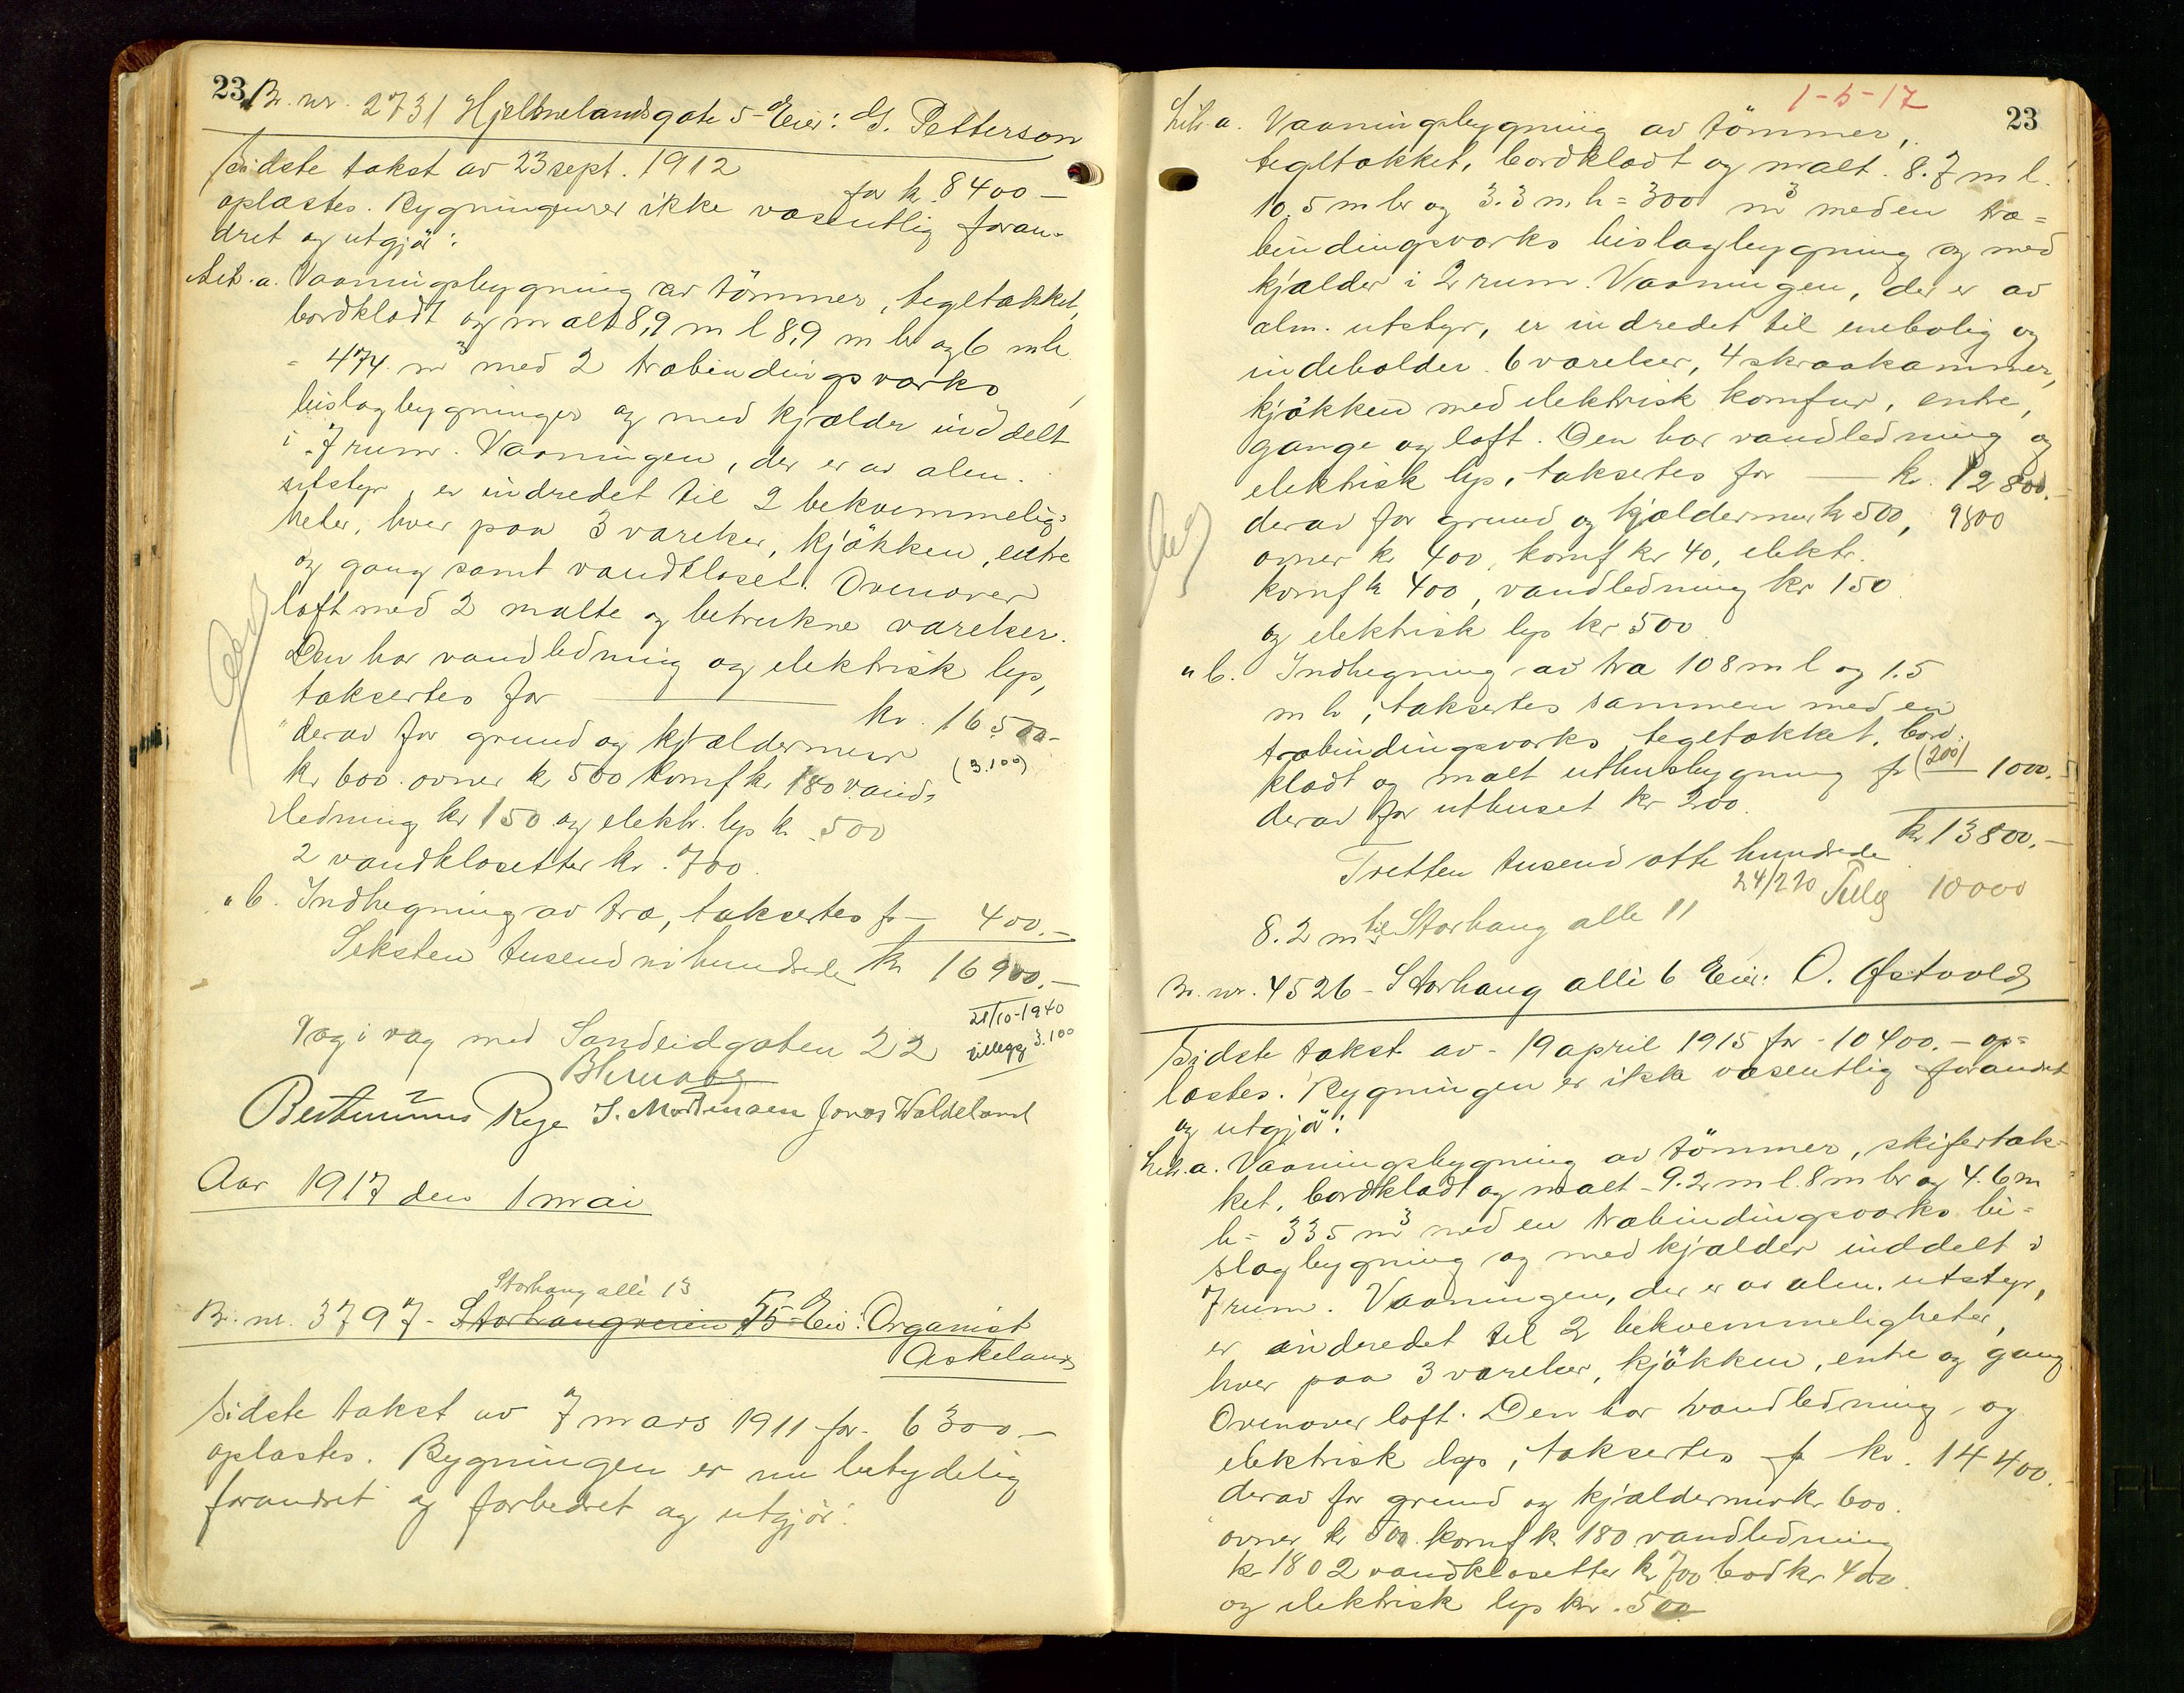 23
Br. nr. 2731 Hjelmelandsgate 5 - Eier: G. Petterson
Sidste takst av 23 sept. 1912
for k. 8400 –
oplæstes. Bygningener ikke væsentlig foran-
dret og utgjör:
Litr. a. Vaaningsbygning av tömmer, tegltækket,
bordklædt og malt 8,9 m l 8,9 m br og 6 m h
= 474 m³ med 2 træbindingsværks
bislagbygninger og med kjælder inddelt
i 7 rum. Vaaningen, der er av alm.
utstyr, er indredet til 2 bekvemmelig-
heter, hver paa 3 værelser, kjökken, entre
og gang samt vandkloset. Ovenover
loft med 2 malte og betrukne værelser.
Den har vandledning og elektrisk lys,
taksertes for — kr. 16500 –
derav for grund og kjældermur
(3.100)
kr 600. ovner k 500 komf kr 180 vand-
ledning kr 150 og elektr. lys k. 500
2 vandklosetter kr. 700.
" b. Indhegning av træ, taksertes fr – 400. –
Seksten tusend ni hundrede kr 16900. –
Væg i væg med Sandeidgaten 22
28/10-1940
tillegg 3.100
Rege S. Mortensen Jonas Waldeland
Aar 1917 den 1 mai
Storhaug alle 13
Br. nr. 3797 - Storhaugveien 15 - Eier: Organist
Askeland
Sidste takst av 7 mars 1911 for - 6300 –
oplæstes. Bygningen er nu betydelig
forandret og forbedret og utgjör:
1-5-17
23
Litr. a. Vaaningsbygning av tömmer,
tegltækket, bordklædt og malt. 8.7 m l.
10.5 m br og 3.3 m h = 300 m³ med en træ-
bindingsværks bislagbygning og med
kjælder i 2 rum. Vaaningen, der er av
alm. utstyr, er indredet til enebolig og
indeholder 6 værelser, 4 skraakammer,
kjökken med elektrisk komfur, entre,
gange og loft. Den har vandledning og
elektrisk lys, taksertes for — kr. 12800. –
derav for grund og kjældermur kr 500, 9800
ovner kr 400, komf kr 40, elektr.
komf k 400, vandledning kr 150
og elektrisk lys kr 500
" b. Indhegning av træ 108 m l og 1.5
m h, taksertes sammen med en
træbindingsværks, tegltækket, bord-
klædt og malt uthusbygning fr (200) 1000. –
derav for uthuset kr 200.
kr 13800. –
Tretten tusend otte hundrede
24/2 20 Tillæg 10000
8.2 m til Storhaug alle 11
Br. nr. 4526 - Storhaug alle 6 Eier: O. Østvold
Sidste takst av - 19 april 1915 for - 10400. – op-
læstes. Bygningen er ikke væsentlig forandret
og utgjör:
Litr. a. Vaaningsbygning av tömmer, skifertæk-
ket, bordklædt og malt - 9.2 m l. 8 m br og 4.6 m
h = 335 m³ med en træbindingsværks bi-
slagbygning og med kjælder inddelt i
7 rum. Vaaningen, der er av alm. utstyr,
er inderedet til 2 bekvemmeligheter,
hver paa 3 værelser, kjökken, entre og gang
Ovenover loft. Den har vandledning og
elektrisk lys, taksertes fr kr. 14400. –
derav for grund og kjældermur kr 600.
ovner kr 500. komf k 180 vandledning
kr 180 2 vandklosetter k 700 bod kr 400.
og elektrisk lys kr. 500